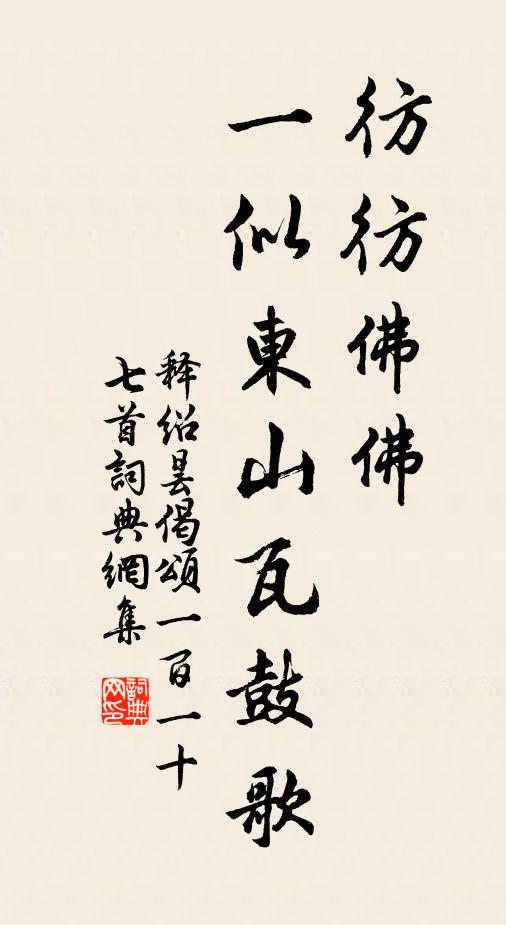 彷彷佛佛
一似東山瓦鼓歌
释绍昙偈頌一百一十
七首詞典網集
詞典
网印